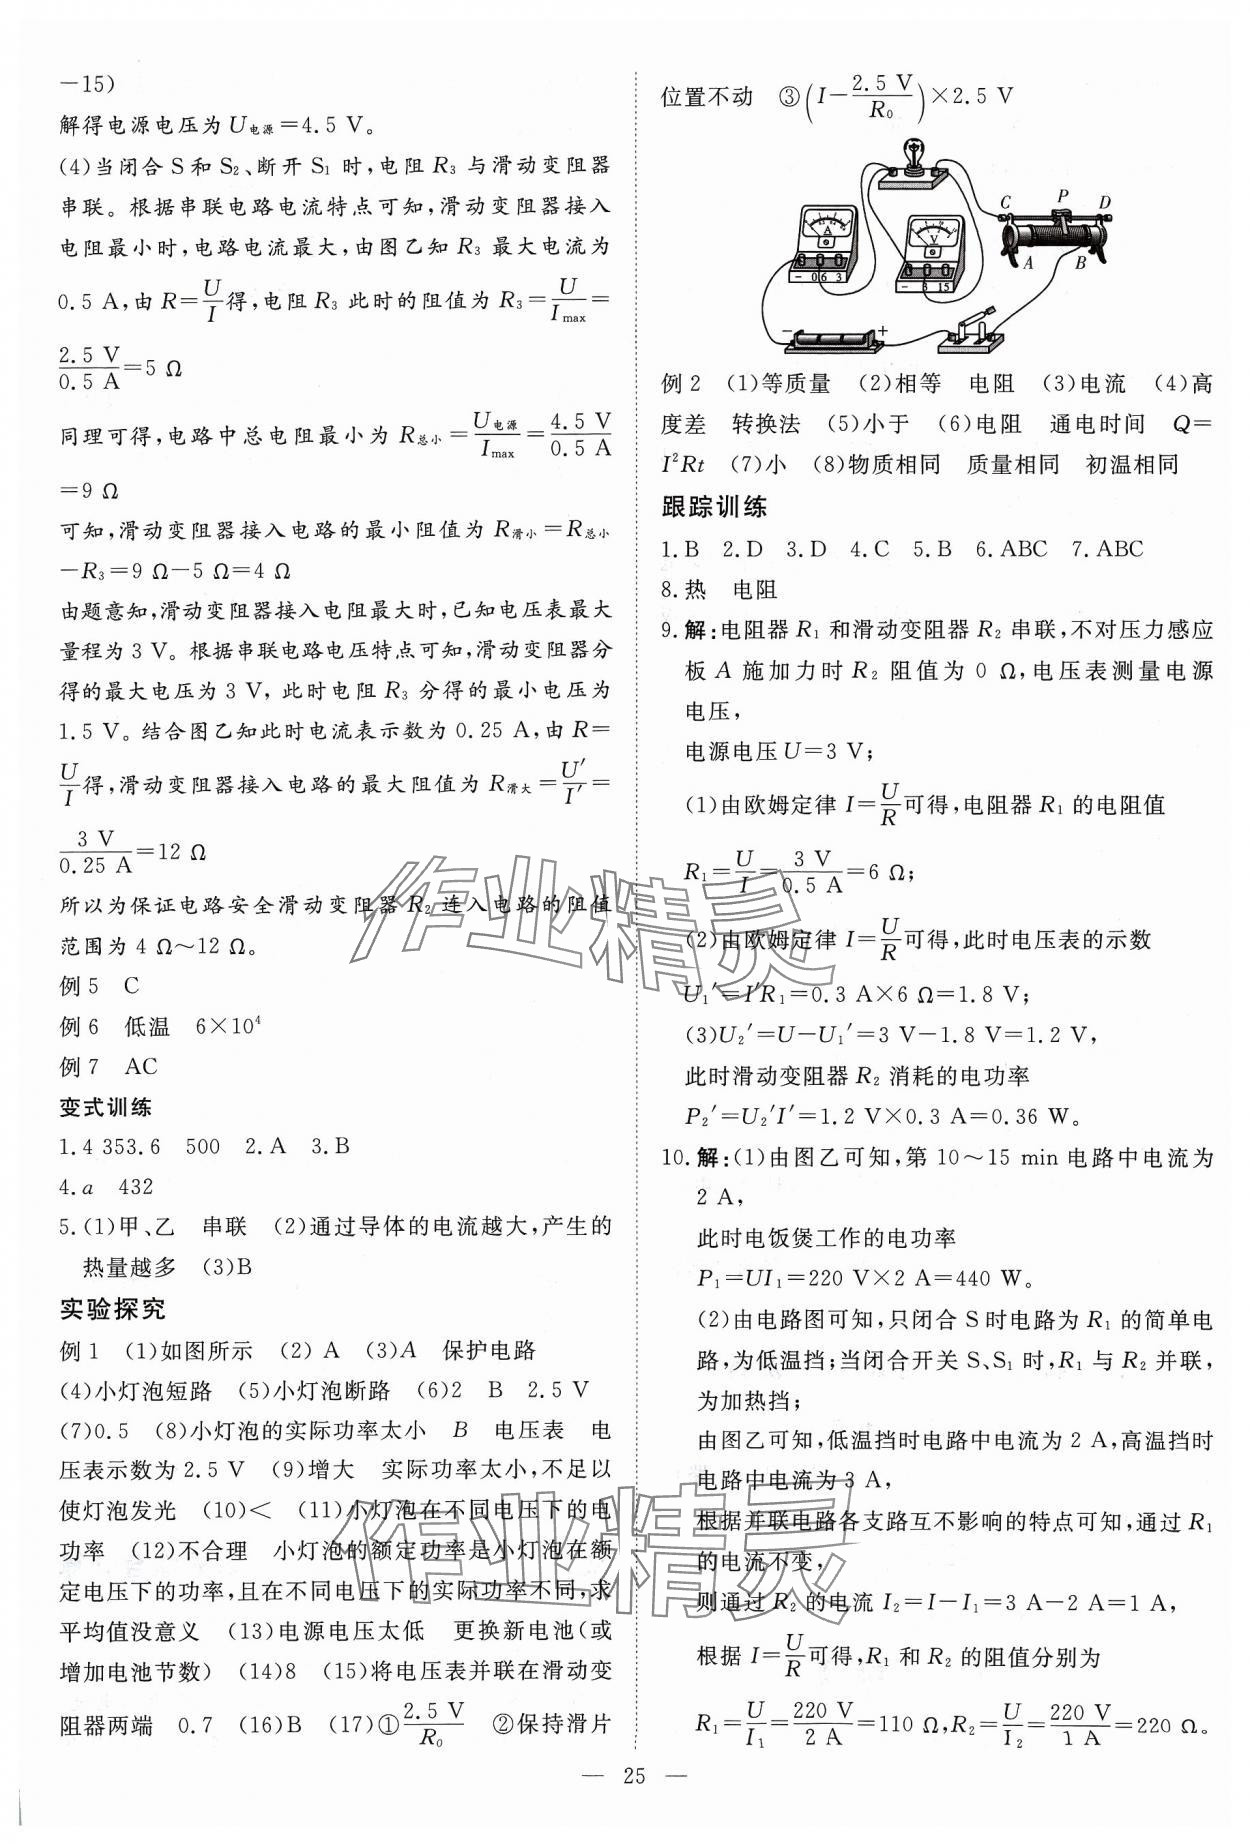 －15)
解得电源电压为 U电源＝4.5 V。
(4)当闭合 S 和 S₂、断开 S₁ 时,电阻 R₃ 与滑动变阻器
串联。根据串联电路电流特点可知,滑动变阻器接入
电阻最小时,电路电流最大,由图乙知 R₃ 最大电流为
0.5 A,由 R＝U/I得,电阻 R₃ 此时的阻值为 R₃＝U/Imax＝
2.5 V/0.5 A＝5 Ω
同理可得,电路中总电阻最小为 R总小＝U电源/Imax＝4.5 V/0.5 A
＝9 Ω
可知,滑动变阻器接入电路的最小阻值为 R滑小＝R总小
－R₃＝9 Ω－5 Ω＝4 Ω
由题意知,滑动变阻器接入电阻最大时,已知电压表最大
量程为 3 V。根据串联电路电压特点可知,滑动变阻器分
得的最大电压为 3 V, 此时电阻 R₃ 分得的最小电压为
1.5 V。结合图乙知此时电流表示数为 0.25 A,由 R＝
U/I得,滑动变阻器接入电路的最大阻值为 R滑大＝U′/I′＝
3 V/0.25 A＝12 Ω
所以为保证电路安全滑动变阻器 R₂ 连入电路的阻值
范围为 4 Ω～12 Ω。
例 5 C
例 6 低温 6×10⁴
例 7 AC
变式训练
1.4 353.6 500 2.A 3.B
4.a 432
5.(1)甲、乙 串联 (2)通过导体的电流越大,产生的
热量越多 (3)B
实验探究
例 1 (1)如图所示 (2) A (3)A 保护电路
(4)小灯泡短路 (5)小灯泡断路 (6)2 B 2.5 V
(7)0.5 (8)小灯泡的实际功率太小 B 电压表 电
压表示数为 2.5 V (9)增大 实际功率太小,不足以
使灯泡发光 (10)＜ (11)小灯泡在不同电压下的电
功率 (12)不合理 小灯泡的额定功率是小灯泡在额
定电压下的功率,且在不同电压下的实际功率不同,求
平均值没意义 (13)电源电压太低 更换新电池(或
增加电池节数) (14)8 (15)将电压表并联在滑动变
阻器两端 0.7 (16)B (17)①2.5 V/R₀ ②保持滑片
位置不动 ③(I－2.5 V/R₀)×2.5 V
C P D
A B
A
－ 0.6 3
V
－ 3 15
－ ＋
例 2 (1)等质量 (2)相等 电阻 (3)电流 (4)高
度差 转换法 (5)小于 (6)电阻 通电时间 Q＝
I²Rt (7)小 (8)物质相同 质量相同 初温相同
跟踪训练
1.B 2.D 3.D 4.C 5.B 6.ABC 7.ABC
8.热 电阻
9.解:电阻器 R₁ 和滑动变阻器 R₂ 串联,不对压力感应
板 A 施加力时 R₂ 阻值为 0 Ω,电压表测量电源
电压,
电源电压 U＝3 V;
(1)由欧姆定律 I＝U/R可得,电阻器 R₁ 的电阻值
R₁＝U/I＝3 V/0.5 A＝6 Ω;
(2)由欧姆定律 I＝U/R可得,此时电压表的示数
U₁′＝I′R₁＝0.3 A×6 Ω＝1.8 V;
(3)U₂′＝U－U₁′＝3 V－1.8 V＝1.2 V,
此时滑动变阻器 R₂ 消耗的电功率
P₂′＝U₂′I′＝1.2 V×0.3 A＝0.36 W。
10.解:(1)由图乙可知,第 10～15 min 电路中电流为
2 A,
此时电饭煲工作的电功率
P₁＝UI₁＝220 V×2 A＝440 W。
(2)由电路图可知,只闭合 S 时电路为 R₁ 的简单电
路,为低温挡;当闭合开关 S、S₁ 时,R₁ 与 R₂ 并联,
为加热挡;
由图乙可知,低温挡时电路中电流为 2 A,高温挡时
电路中电流为 3 A,
根据并联电路各支路互不影响的特点可知,通过 R₁
的电流不变,
则通过 R₂ 的电流 I₂＝I－I₁＝3 A－2 A＝1 A,
根据 I＝U/R可得,R₁ 和 R₂ 的阻值分别为
R₁＝U/I₁＝220 V/2 A＝110 Ω,R₂＝U/I₂＝220 V/1 A＝220 Ω。
作业精灵
作业精灵
— 25 —